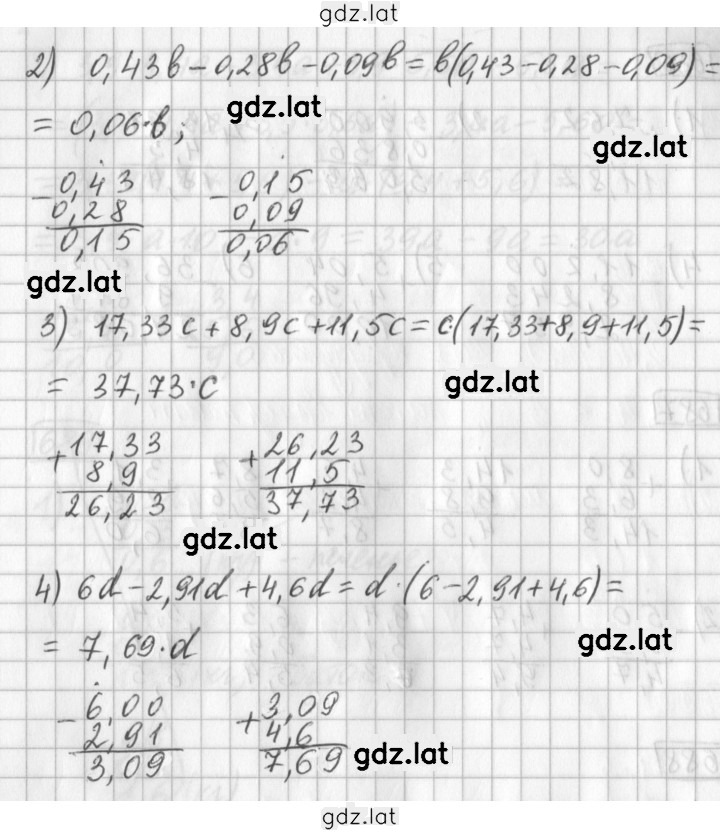 gdz.lat
2) 0,43b - 0,28b - 0,09b = b(0,43 - 0,28 - 0,09) =
gdz.lat
= 0,06·b;
gdz.lat
- 0,43 - 0,15
0,28 0,09
0,15 0,06
gdz.lat
3) 17,33c + 8,9c + 11,5c = c·(17,33+8,9+11,5) =
= 37,73·c
gdz.lat
+ 17,33 + 26,23
8,9 11,5
26,23 37,73
gdz.lat
4) 6d - 2,91d + 4,6d = d·(6 - 2,91 + 4,6) =
= 7,69·d
gdz.lat
- 6,00 + 3,09
2,91 4,6
3,09 7,69
gdz.lat
gdz.lat